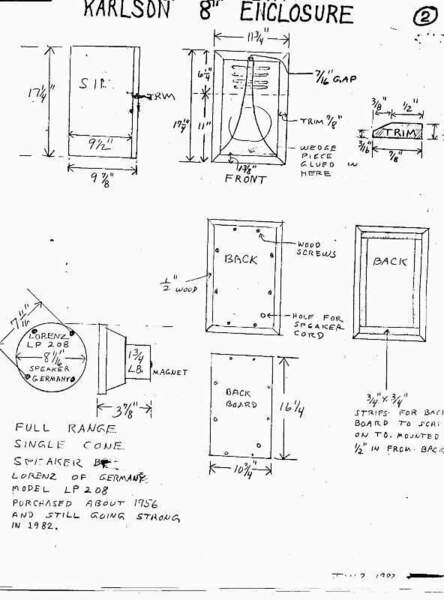 KARLSON 8" ENCLOSURE
2
11 3/4"
17 1/4"
SIDE
TRIM
9 1/2"
9 7/8"
6 1/4"
17 1/4"
11"
7/16" GAP
TRIM 7/8"
WEDGE
PIECE
GLUED IN
HERE
1 3/8"
FRONT
3/8"
1/2"
TRIM
3/16"
7/8"
1/2" WOOD
BACK
WOOD
SCREWS
HOLE FOR
SPEAKER
CORD
BACK
7 11/16"
LORENZ
LP 208
8 1/2"
SPEAKER
GERMANY
1 3/4
LB
MAGNET
3 7/8"
BACK
BOARD
16 1/4
10 3/4"
3/4" x 3/4"
STRIPS FOR BACK
BOARD TO SCR
ON TO. MOUNTED
1/2" IN FROM BACK
FULL RANGE
SINGLE CONE
SPEAKER BY
LORENZ OF GERMANY
MODEL LP 208
PURCHASED ABOUT 1956
AND STILL GOING STRONG
IN 1982.